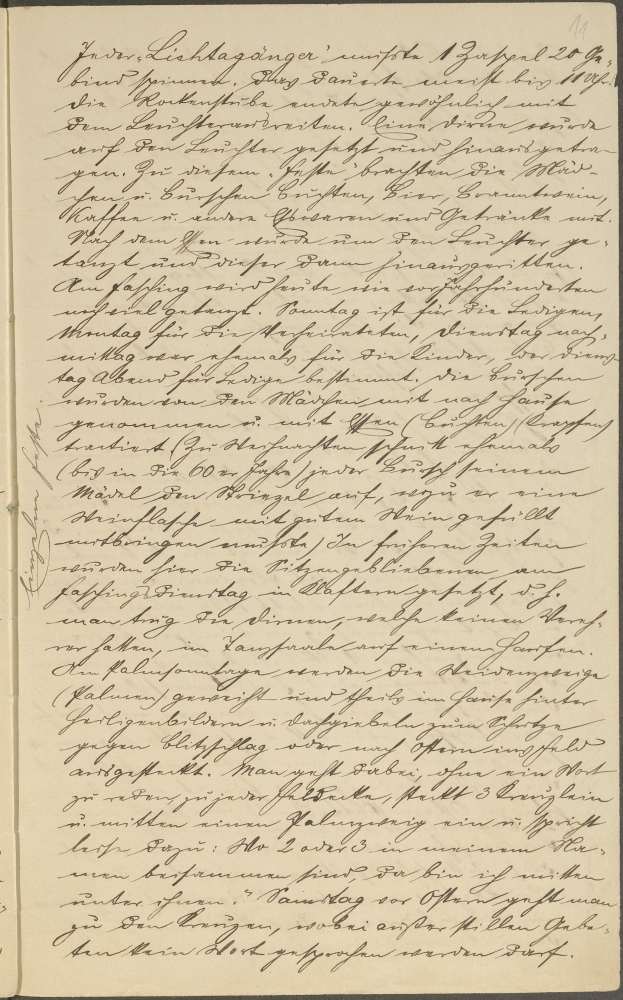 11
Jeder „Lichtagänger" mußte 1 Zaspel 20 Ge-
bind spinnen. Das dauerte meist bis 11 Uhr.
Die Rockenstube endete gewöhnlich mit
dem Leuchterausreiten. Eine Dirne wurde
auf den Leuchter gesetzt und hinausgetra-
gen. Zu diesem „Feste" brachten die Mäd-
chen u. Burschen Buchten, Bier, Branntwein,
Kaffee u. andere Eßwaren und Getränke mit.
Nach dem Essen wurde um den Leuchter ge-
tanzt und dieser dann hinausgeritten.
Am Fasching wird heute wie vor Jahrhunderten
noch viel getanzt. Sonntag ist für die Ledigen,
Montag für die Verheirateten, Dienstag nach-
mittag war ehemals für die Kinder, der Diens-
tag Abend für Ledige bestimmt. Die Burschen
wurden von den Mädchen mit nach Hause
genommen u. mit Essen (Buchten, Krapfen)
tractiert. (Zu Weihnachten schnitt ehemals
(bis in die 60er Jahre) jeder Bursch seinem
Mädel den Striezel auf, wozu er eine
Weinflasche mit gutem Wein gefüllt
mitbringen mußte) In früheren Zeiten
wurden hier die Sitzengebliebenen am
Faschingsdienstag in Klaftern gesetzt, d. h.
man trug die Dirnen, welche keinen Vereh-
rer hatten, im Tanzsaale auf einen Haufen.
Am Palmsonntage werden die Weidenzweige
(Palmen) geweiht und theils im Hause hinter
Heiligenbildern u. Dachgiebeln zum Schutze
gegen Blitzschlag oder nach Ostern ins Feld
ausgesteckt. Man geht dabei, ohne ein Wort
zu reden, zu jeder Feldecke, steckt 3 Kreuzlein
u. mitten einen Palmzweig ein u. spricht
leise dazu: Wo 2 oder 3 in meinem Na-
men beisammen sind, da bin ich mitten
unter ihnen." Samstag vor Ostern geht man
zu den Kreuzen, wobei außer stillen Gebe-
ten kein Wort gesprochen werden darf.
Feste.